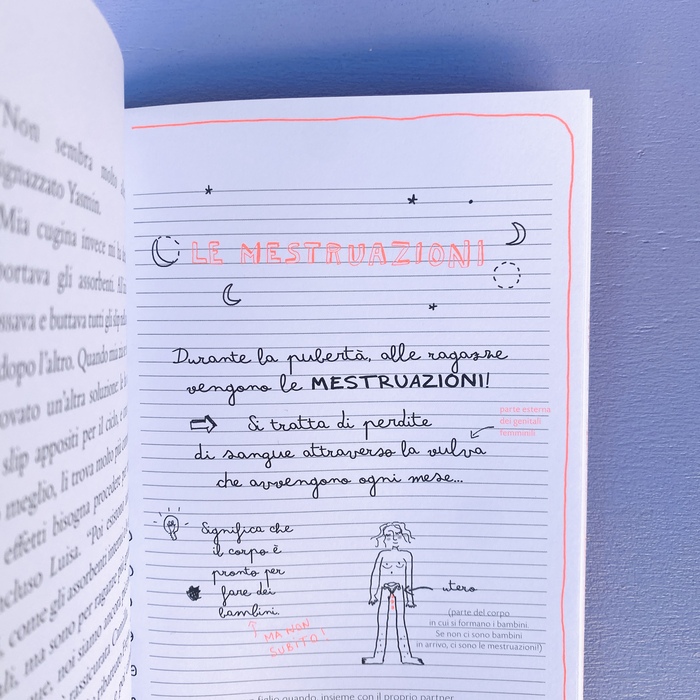 "Non sembra molto
ignazzato Yasmin.
Mia cugina invece mi ha
portava gli assorbenti.
ssava e buttava tutti gli slip
dopo l'altro. Quando
ovato un'altra soluzione: le
slip appositi per il ciclo, e
meglio, li trova molto più
effetti bisogna procedere per
ncluso Luisa. "Poi esistono
come gli assorbenti interni
ma sono per ragazze più
noi siamo ancora
rassicurata
LE MESTRUAZIONI
Durante la pubertà, alle ragazze
vengono le MESTRUAZIONI!
Si tratta di perdite
di sangue attraverso la vulva
che avvengono ogni mese...
parte esterna
dei genitali
femminili
Significa che
il corpo è
pronto per
fare dei
bambini.
MA NON
SUBITO!
utero
(parte del corpo
in cui si formano i bambini.
Se non ci sono bambini
in arrivo, ci sono le mestruazioni!)
figlio quando, insieme con il proprio partner